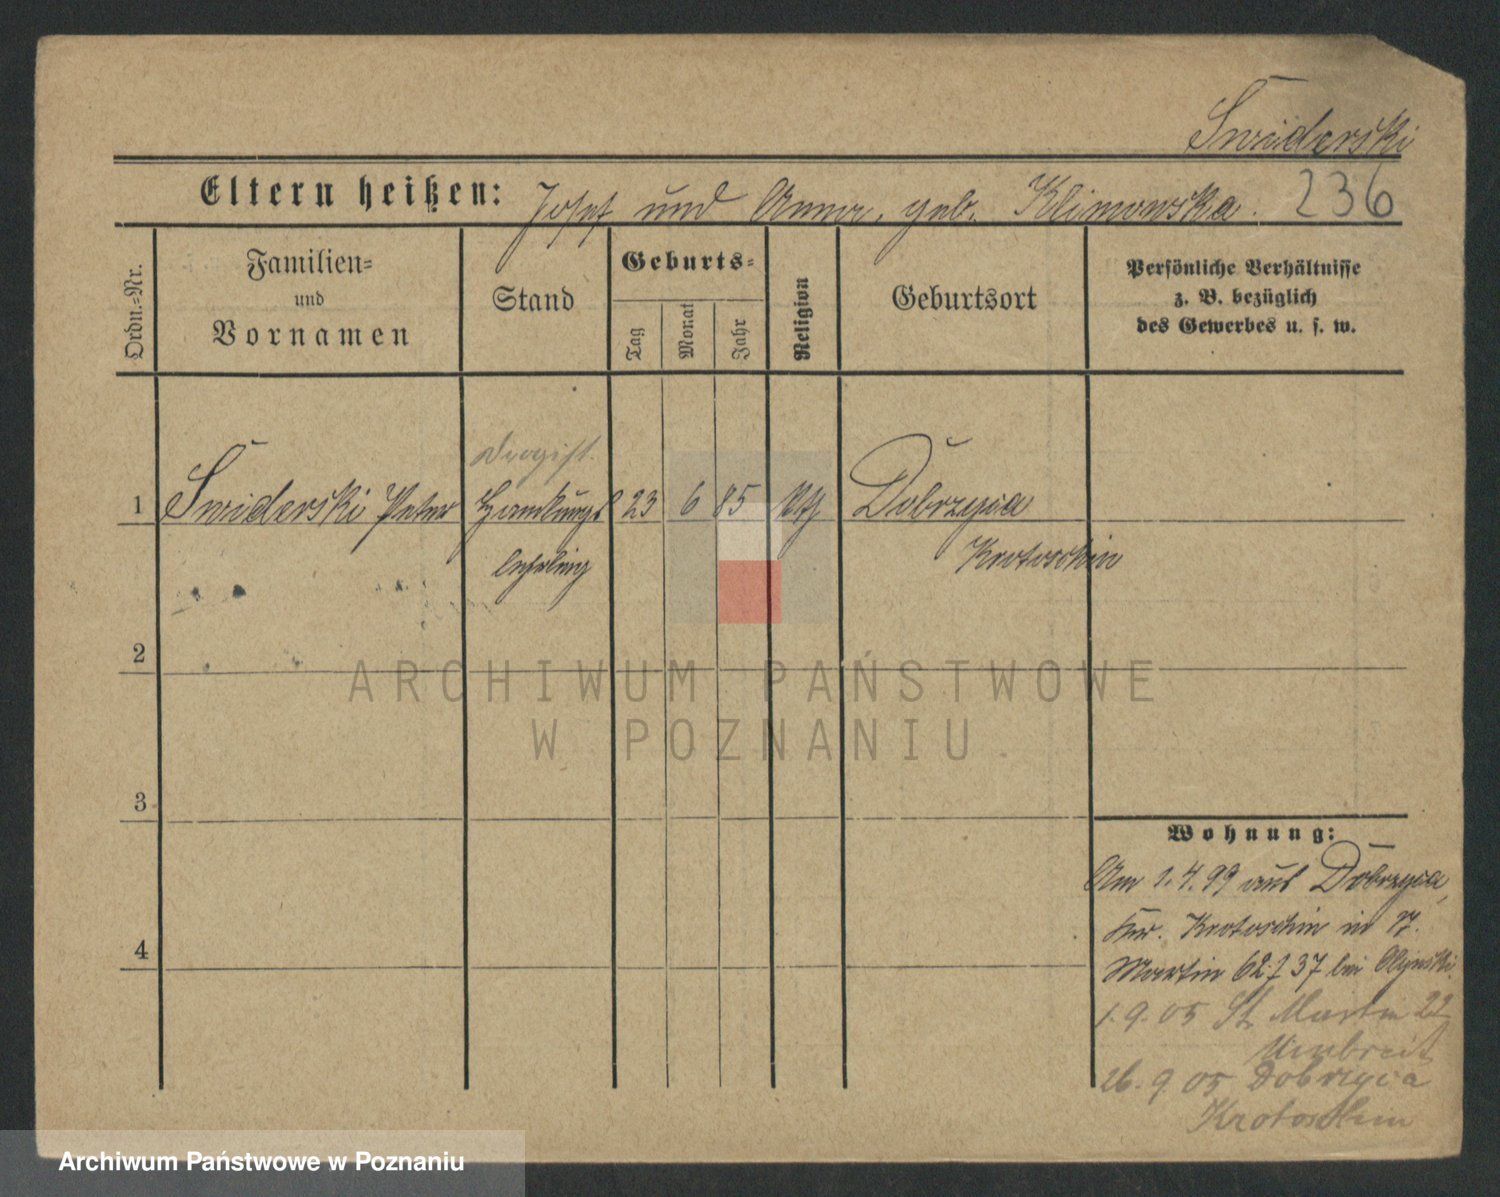 Swiderski
Eltern heißen: Josef und Anna, geb. Klimowska. 236
Ordn.-Nr.
Familien-
und
Vornamen
Stand
Geburts-
Tag
Monat
Jahr
Religion
Geburtsort
Persönliche Verhältnisse
z. B. bezüglich
des Gewerbes u. s. w.
Drogist.
1 Swiderski Peter 23 6 85 Dobrzyca
lehrling Krotoschin
2
3
4
Wohnung:
Am 1.4.99 aus Dobrzyca,
Krotoschin in
Martin 62 37 bei
1.9.05 St Martin 22
Umbreit
26.9.05 Dobrzyca
Krotoschin
ARCHIWUM PAŃSTWOWE
W POZNANIU
Archiwum Państwowe w Poznaniu